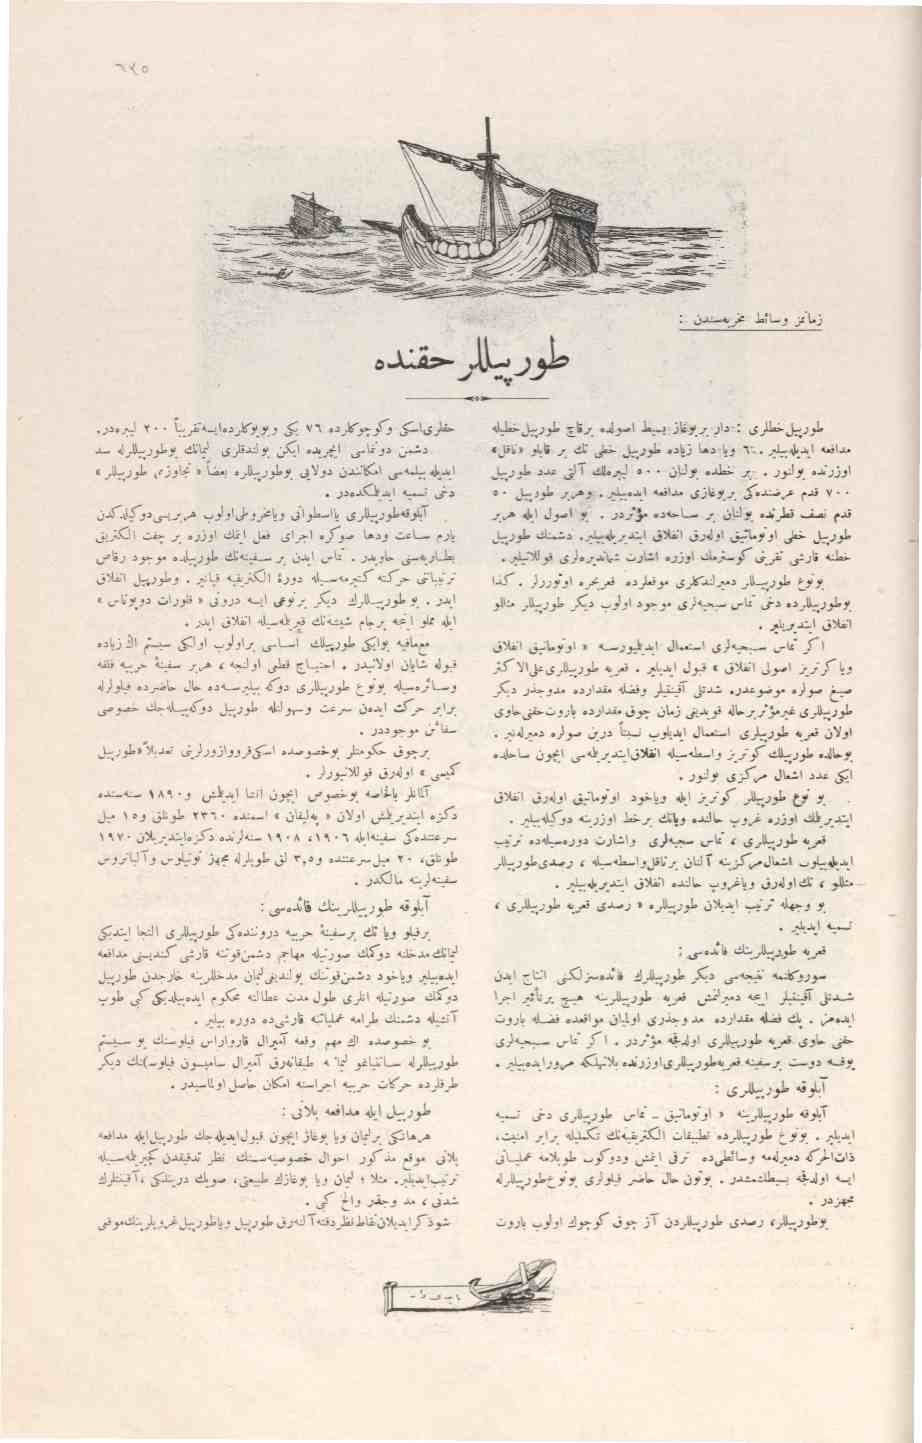 ٦٢٥
زمانمز وسائط مخربه‌سندن :
طورپيللر حقنده
طورپيل خطلرى : دار بر بوغاز بسيط اصولده برقاچ طورپيل خطيله
مدافعه ايديله‌بيلير. ويا دها زياده طورپيل خطى تك بر قابلو «ناقل»
اوزرنده بولنور . بر خطده بولنان ٥٠٠ ليبره‌لك آلتى عدد طورپيل
٧٠٠ قدم عرضنده‌كى بر بوغازى مدافعه ايده‌بيلير. وهربر طورپيل ٥٠
قدم نصف قطرنده بولنان بر ساحه‌ده مؤثردر . بو اصول ايله هربر
طورپيل خطى اوتوماتيق اوله‌رق انفلاق ايتديريله‌بيلير. دشمنك طورپيل
خطنه قارشى تقربنى كوسترمك اوزره اشارت شمانديره‌لرى قوللانيلير.
بونوع طورپيللر دميرلندكلرى موقعلرده قعربحره اوتوررلر . كذا
بوطورپيللرده دخى تماس سجيه‌لرى موجود اولوب ديكر طورپيللر مثللو
انفلاق ايتديريلير.
اكر تماس سجيه‌لرى استعمال ايديليورسه « اوتوماتيق انفلاق
وياكرتريز اصولى انفلاق » قبول ايديلير . قعريه طورپيللرى على الاكثر
صيغ صولره موضوعدر. شدتلى آقينتيلر وفضله مقدارده مدوجذر ديكر
طورپيللرى غيرمؤثر برحاله قويدينى زمان چوق مقدارده باروت حفنى حاوى
اولان قعريه طورپيلرى استعمال ايديلوب نسبتاً درين صولره دميرله‌نير.
بوحالده طورپيلك كوتريز واسطه‌سيله انفلاق ايتديريله‌سى ايچون ساحلده
ايكى عدد اشعال مركزى بولنور .
بو نوع طورپيللر كوتريز ايله وياخود اوتوماتيق اوله‌رق انفلاق
ايتديريلمك اوزره غروپ حالنده وياتك برخط اوزرينه دوكيله‌بيلير.
قعريه طورپيللرى ، تماس سجيه‌لرى واشارت دوره‌سيله‌ده ترتيب
ايديله‌بيلوب اشعال مركزينه آلنان برناقل واسطه‌سيله ، رصدى طورپيللر
مثللو ، تك اوله‌رق وياغروپ حالنده انفلاق ايتديريله‌بيلير .
بو وجهله ترتيب ايديلان طورپيللره « رصدى قعريه طورپيللرى »
تسميه ايديلير .
قعريه طورپيللرينك فائده‌سى :
سوروكلنمه نتيجه‌سى ديكر طورپيللرك فائده‌سزلكنى انتاج ايدن
شدتلى آقينتيلر ايچه دميرلنمش قعريه طورپيللرينه هيچ برتأثير اجرا
ايده‌مز. پك فضله مقدارده مدوجذرى اولميان مواقعده فضله باروت
حفنى حاوى قعريه طورپيللرى اولدقجه مؤثردر . اكر تماس سجيه‌لرى
يوقسه دوست برسفينه قعريه‌طورپيللرى اوزرنده بلاتهلكه مرورايده‌بيلير.
آبلوقه طورپيللرى :
آبلوقه طورپيللرينه « اوتوماتيق ـ تماس طورپيللرى دخى تسميه
ايديلير. بونوع طورپيللرده تطبيقات الكتريقيه‌نك تكمليله برابر امنيت،
ذات‌الحركه دميرله‌مه وسائطى‌ده ترقى ايتمش ودوكوب طوپلامه عملياتى
ايسه اولدقجه بسيطلشمشدر. بوتون حال حاضر فيلولرى بونوع‌طورپيللرله
مجهزدر .
بوطورپيللر، رصدى طورپيللردن آز چوق كوچوك اولوب باروت
حقلرى اسكى وكوچوكلرده ٧٦ يكى وبيوكلرده‌ايسه تقريباً ٢٠٠ ليبره‌در.
دشمن دونماسى ايچريده ايكن بولندقلرى ليمانك بوطورپيللرله سد
ايديله‌بيلمه‌سى امكانندن دولايى بوطورپيللره بعضاً « تجاوزى طورپيللر »
دخى تسميه ايديلمكده‌در .
آبلوقه‌طورپيللرى يااسطوانى ويامخروطى‌اولوب هربريسى‌دوكيلدكدن
يارم ساعت ودها صوكره اجراى فعل ايتمك اوزره بر جفت الكتريق
بطاريه‌سنى حاويدر. تماس ايدن بر سفينه‌نك طورپيلده موجود رقاص
ترتيباتنى حركته كتيرمه‌سيله دورۀ الكتريقيه قپانير . وطورپيل انفلاق
ايدر . بوطورپيللرك ديكر برنوعى ايسه درونى « فلورات دوپوتاس »
ايله مملو ايچه برجام شيشه‌نك قيريلمه‌سيله انفلاق ايدر .
مع‌مافيه بوايكى طورپيلك اساسى براولوب اولكى سيستم اك زياده
قبوله شايان اولانيدر . احتياج قطعى اولنجه ، هربر سفينۀ حربيه فلقه
وسائره‌سيله بونوع طورپيللرى دوكه بيليرسه‌ده حال حاضرده فيلولرله
برابر حركت ايده‌ن سرعت وسهولتله طورپيل دوكه‌بيله‌جك خصوصى
سفائن موجوددر .
برچوق حكومتلر بوخصوصده اسكى قرووازورلرينى تعديلاً «طورپيل
كميسى » اوله‌رق قوللانيورلر .
آلمانلر بالخاصه بوخصوص ايچون انشا ايديلمش و١٨٩٠ سنه‌سنده
دكزه ايتديريلمش اولان « په‌ليقان » اسمنده ٢٣٦٠ طونلق و١٥ ميل
سرعتنده‌كى سفينه‌ايله ١٩٠٦، ١٩٠٨ سنه‌لرنده دكزه‌ايتديريلان ١٩٧٠
طونلق، ٢٠ ميل‌سرعتنده و٣,٥ لق طوپلرله مجهز نوتيلوس وآلباتروس
سفينه‌لرينه مالكدر .
آبلوقه طورپيللرينك فائده‌سى :
برفيلو ويا تك برسفينۀ حربيه دروننده‌كى طورپيللرى التجا ايتديكى
ليمانك‌مدخلنه دوكمك صورتيله مهاجم دشمن‌قوتنه قارشى كنديسنى مدافعه
ايده‌بيلير وياخود دشمن‌قوتنك بولنديغى ليمان مدخللرينه خارجدن طورپيل
دوكمك صورتيله انلرى طول مدت عطالته محكوم ايده‌بيلديكى كبى طوپ
آتشيله دشمنك طرامه عملياتنه قارشى‌ده دوره بيلير .
بو خصوصده اك مهم وقعه آميرال قارواراس فيلوسنك بو سيستم
طورپيللرله سانتياغو ليماننه طيقانه‌رق آميرال سامپسون فيلوسنك ديكر
طرفلرده حركات حربيه اجراسنه امكان حاصل اولماسيدر .
طورپيل ايله مدافعه پلانى :
هرهانكى برليمان ويا بوغاز ايچون قبول‌ايديله‌جك طورپيل‌ايله مدافعه
پلانى موقع مذكور احوال خصوصيه‌سنك نظر تدقيقدن كچيريلمه‌سيله
ترتيب‌ايديلير. مثلا : ليمان ويا بوغازك طبيعتى، صويك درينلكى ،آقينتلرك
شدتى ، مد وجذر والخ كبى .
شوذكرايديلان‌نقاط نظردقته آلنه‌رق طورپيل وياطورپيل غروپلرينك‌موقعى